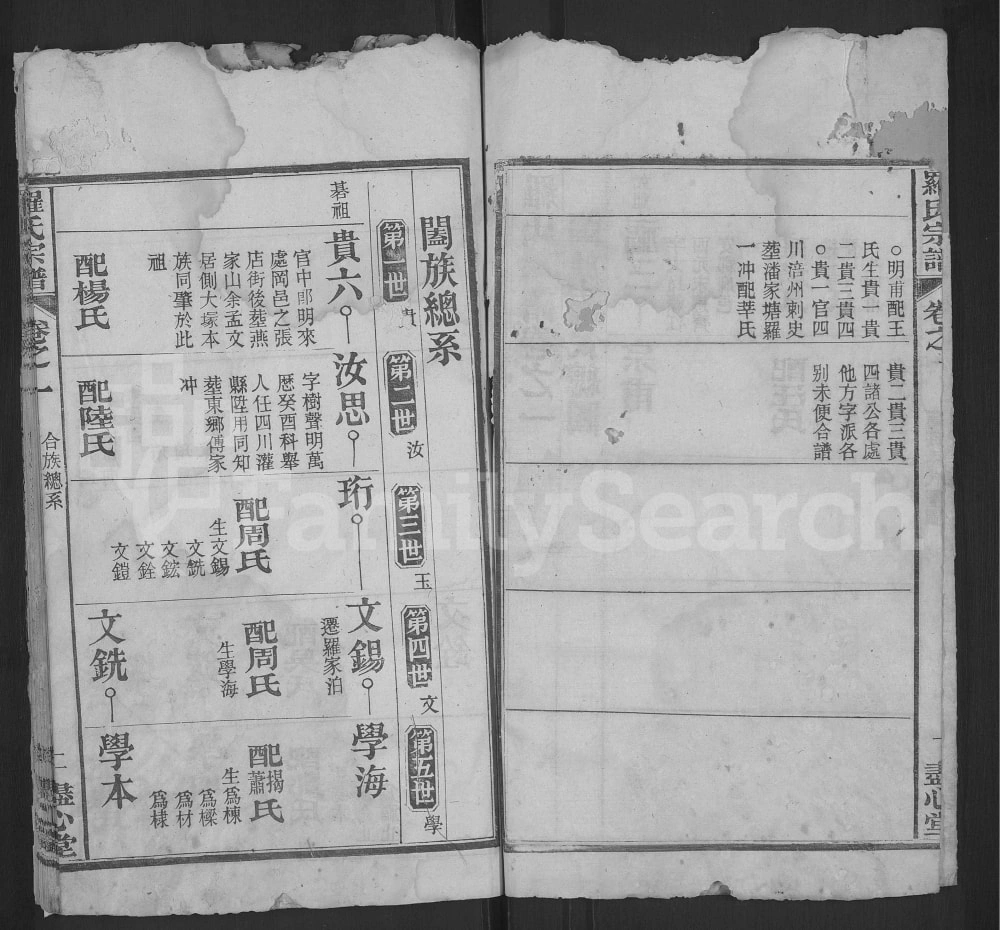 羅氏宗譜
卷之
一
盡心堂
○明甫配王
氏生貴一貴
二貴三貴四
○貴一官四
川涪州刺史
塟潘家塘羅
一冲配莘氏
貴二貴三貴
四諸公各處
他方字派各
别未便合譜
闔族總系
第一世
貴
第二世
汝
第三世
玉
第四世
文
第五世
學
碁祖
貴六
官中郎明來
處岡邑之張
店街後塟燕
家山余孟文
居側大塚本
族同肇於此
祖
配楊氏
汝思
字樹聲明萬
厯癸酉科舉
人任四川灌
縣陞用同知
塟東鄉傅家
冲
配陸氏
珩
配周氏
生文錫
文銑
文鋐
文銓
文鎧
文錫
遷羅家泊
配周氏
生學海
文銑
學海
配揭蕭氏
生爲棟
爲樑
爲材
爲棣
學本
羅氏宗譜
卷之一
合族總系
二
盡心堂
FamilySearch